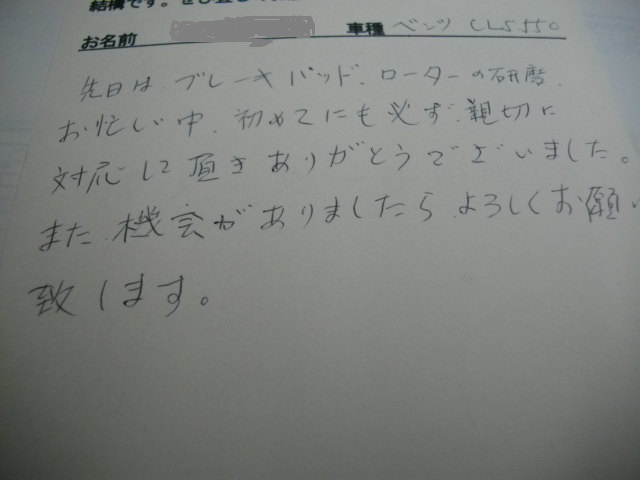 結構です。ぜひ
お名前 車種 ベンツ CLS550
先日は ブレーキパッド、ローターの研磨、
お忙しい中、初めてにも必ず、親切に
対応して頂きありがとうでございました。
また、機会がありましたら よろしくお願い
致します。